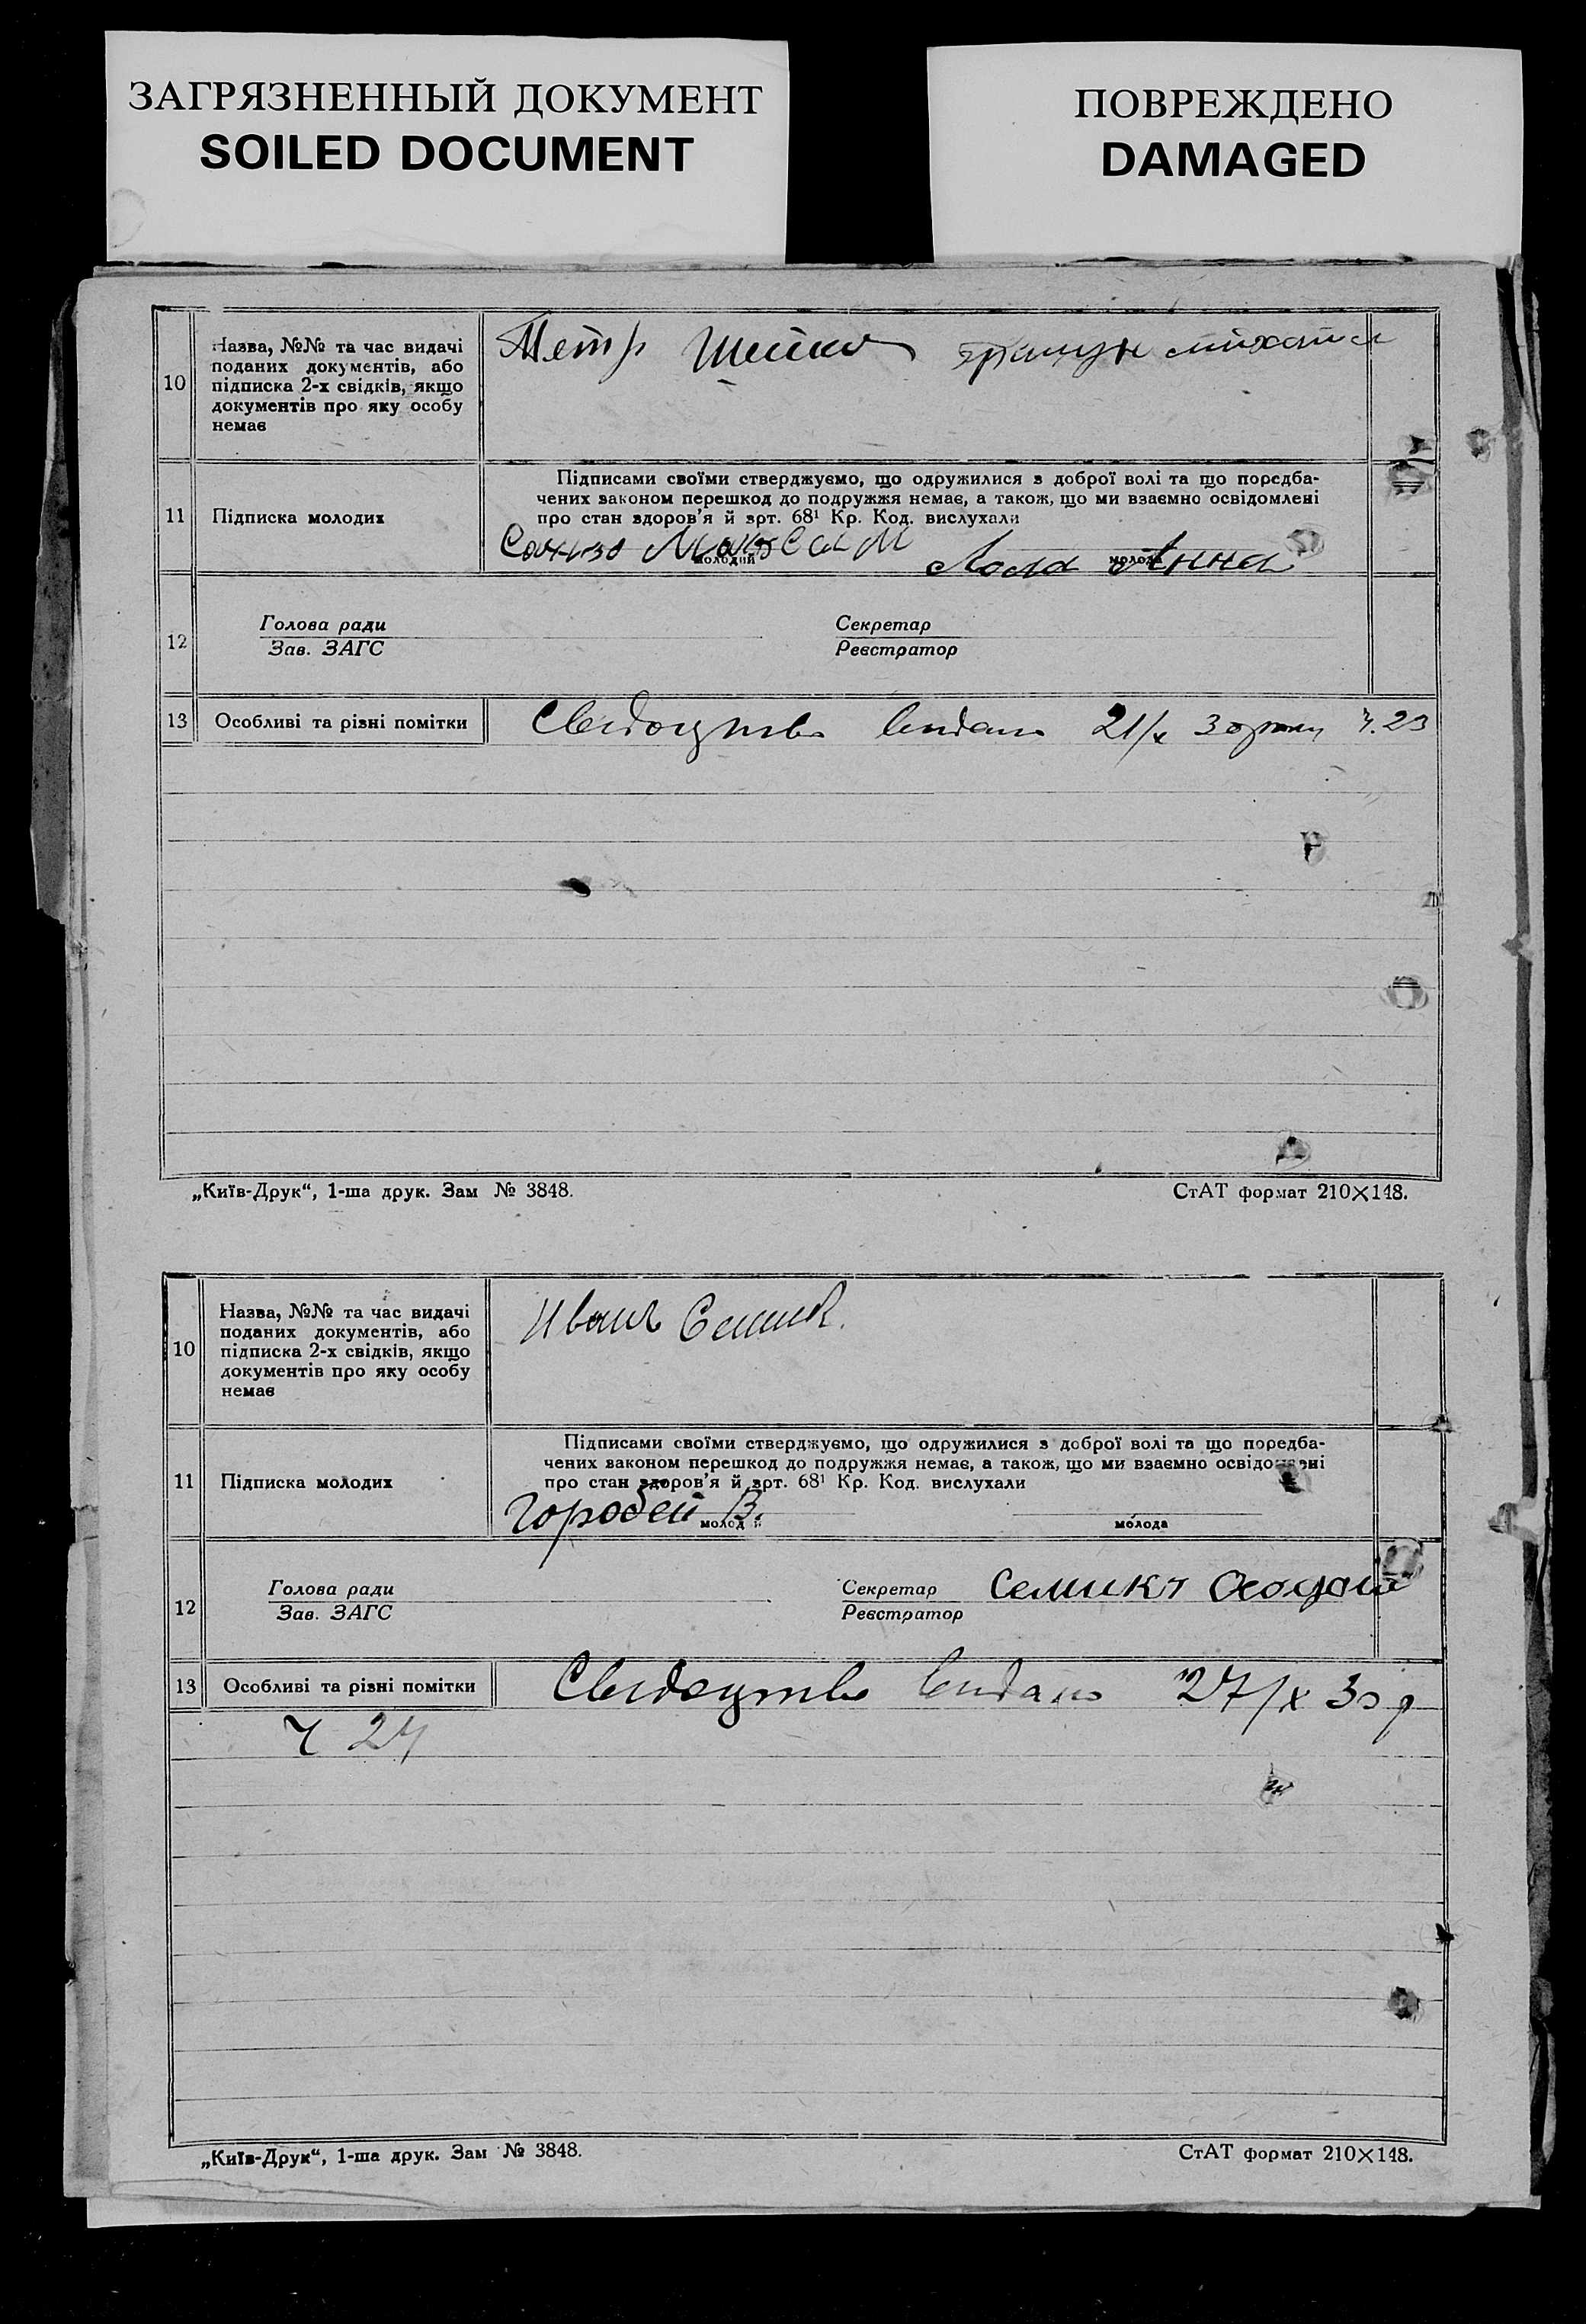 ЗАГРЯЗНЕННЫЙ ДОКУМЕНТ
SOILED DOCUMENT
ПОВРЕЖДЕНО
DAMAGED
10
Назва, №№ та час видачі
поданих документів, або
підписка 2-х свідків, якщо
документів про яку особу
немає
Петр
11
Підписка молодих
Підписами своїми стверджуємо, що одружилися з доброї волі та що передба-
чених законом перешкод до подружжя немає, а також, що ми взаємно освідомлені
про стан здоров'я й арт. 68¹ Кр. Код. вислухали
Максам Анна
молодий молода
12
Голова ради
Зав. ЗАГС
Секретар
Реєстратор
13
Особливі та різні помітки
Свідоцтво видано 21/X 30 року ч. 23
„Київ-Друк“, 1-ша друк. Зам № 3848.
СтАТ формат 210×148.
10
Назва, №№ та час видачі
поданих документів, або
підписка 2-х свідків, якщо
документів про яку особу
немає
Иван Семик.
11
Підписка молодих
Підписами своїми стверджуємо, що одружилися з доброї волі та що передба-
чених законом перешкод до подружжя немає, а також, що ми взаємно освідомлені
про стан здоров'я й арт. 68¹ Кр. Код. вислухали
Горобей В.
молодий молода
12
Голова ради
Зав. ЗАГС
Секретар
Реєстратор
13
Особливі та різні помітки
Свідоцтво видано 27/X 30 р
ч 24
„Київ-Друк“, 1-ша друк. Зам № 3848.
СтАТ формат 210×148.